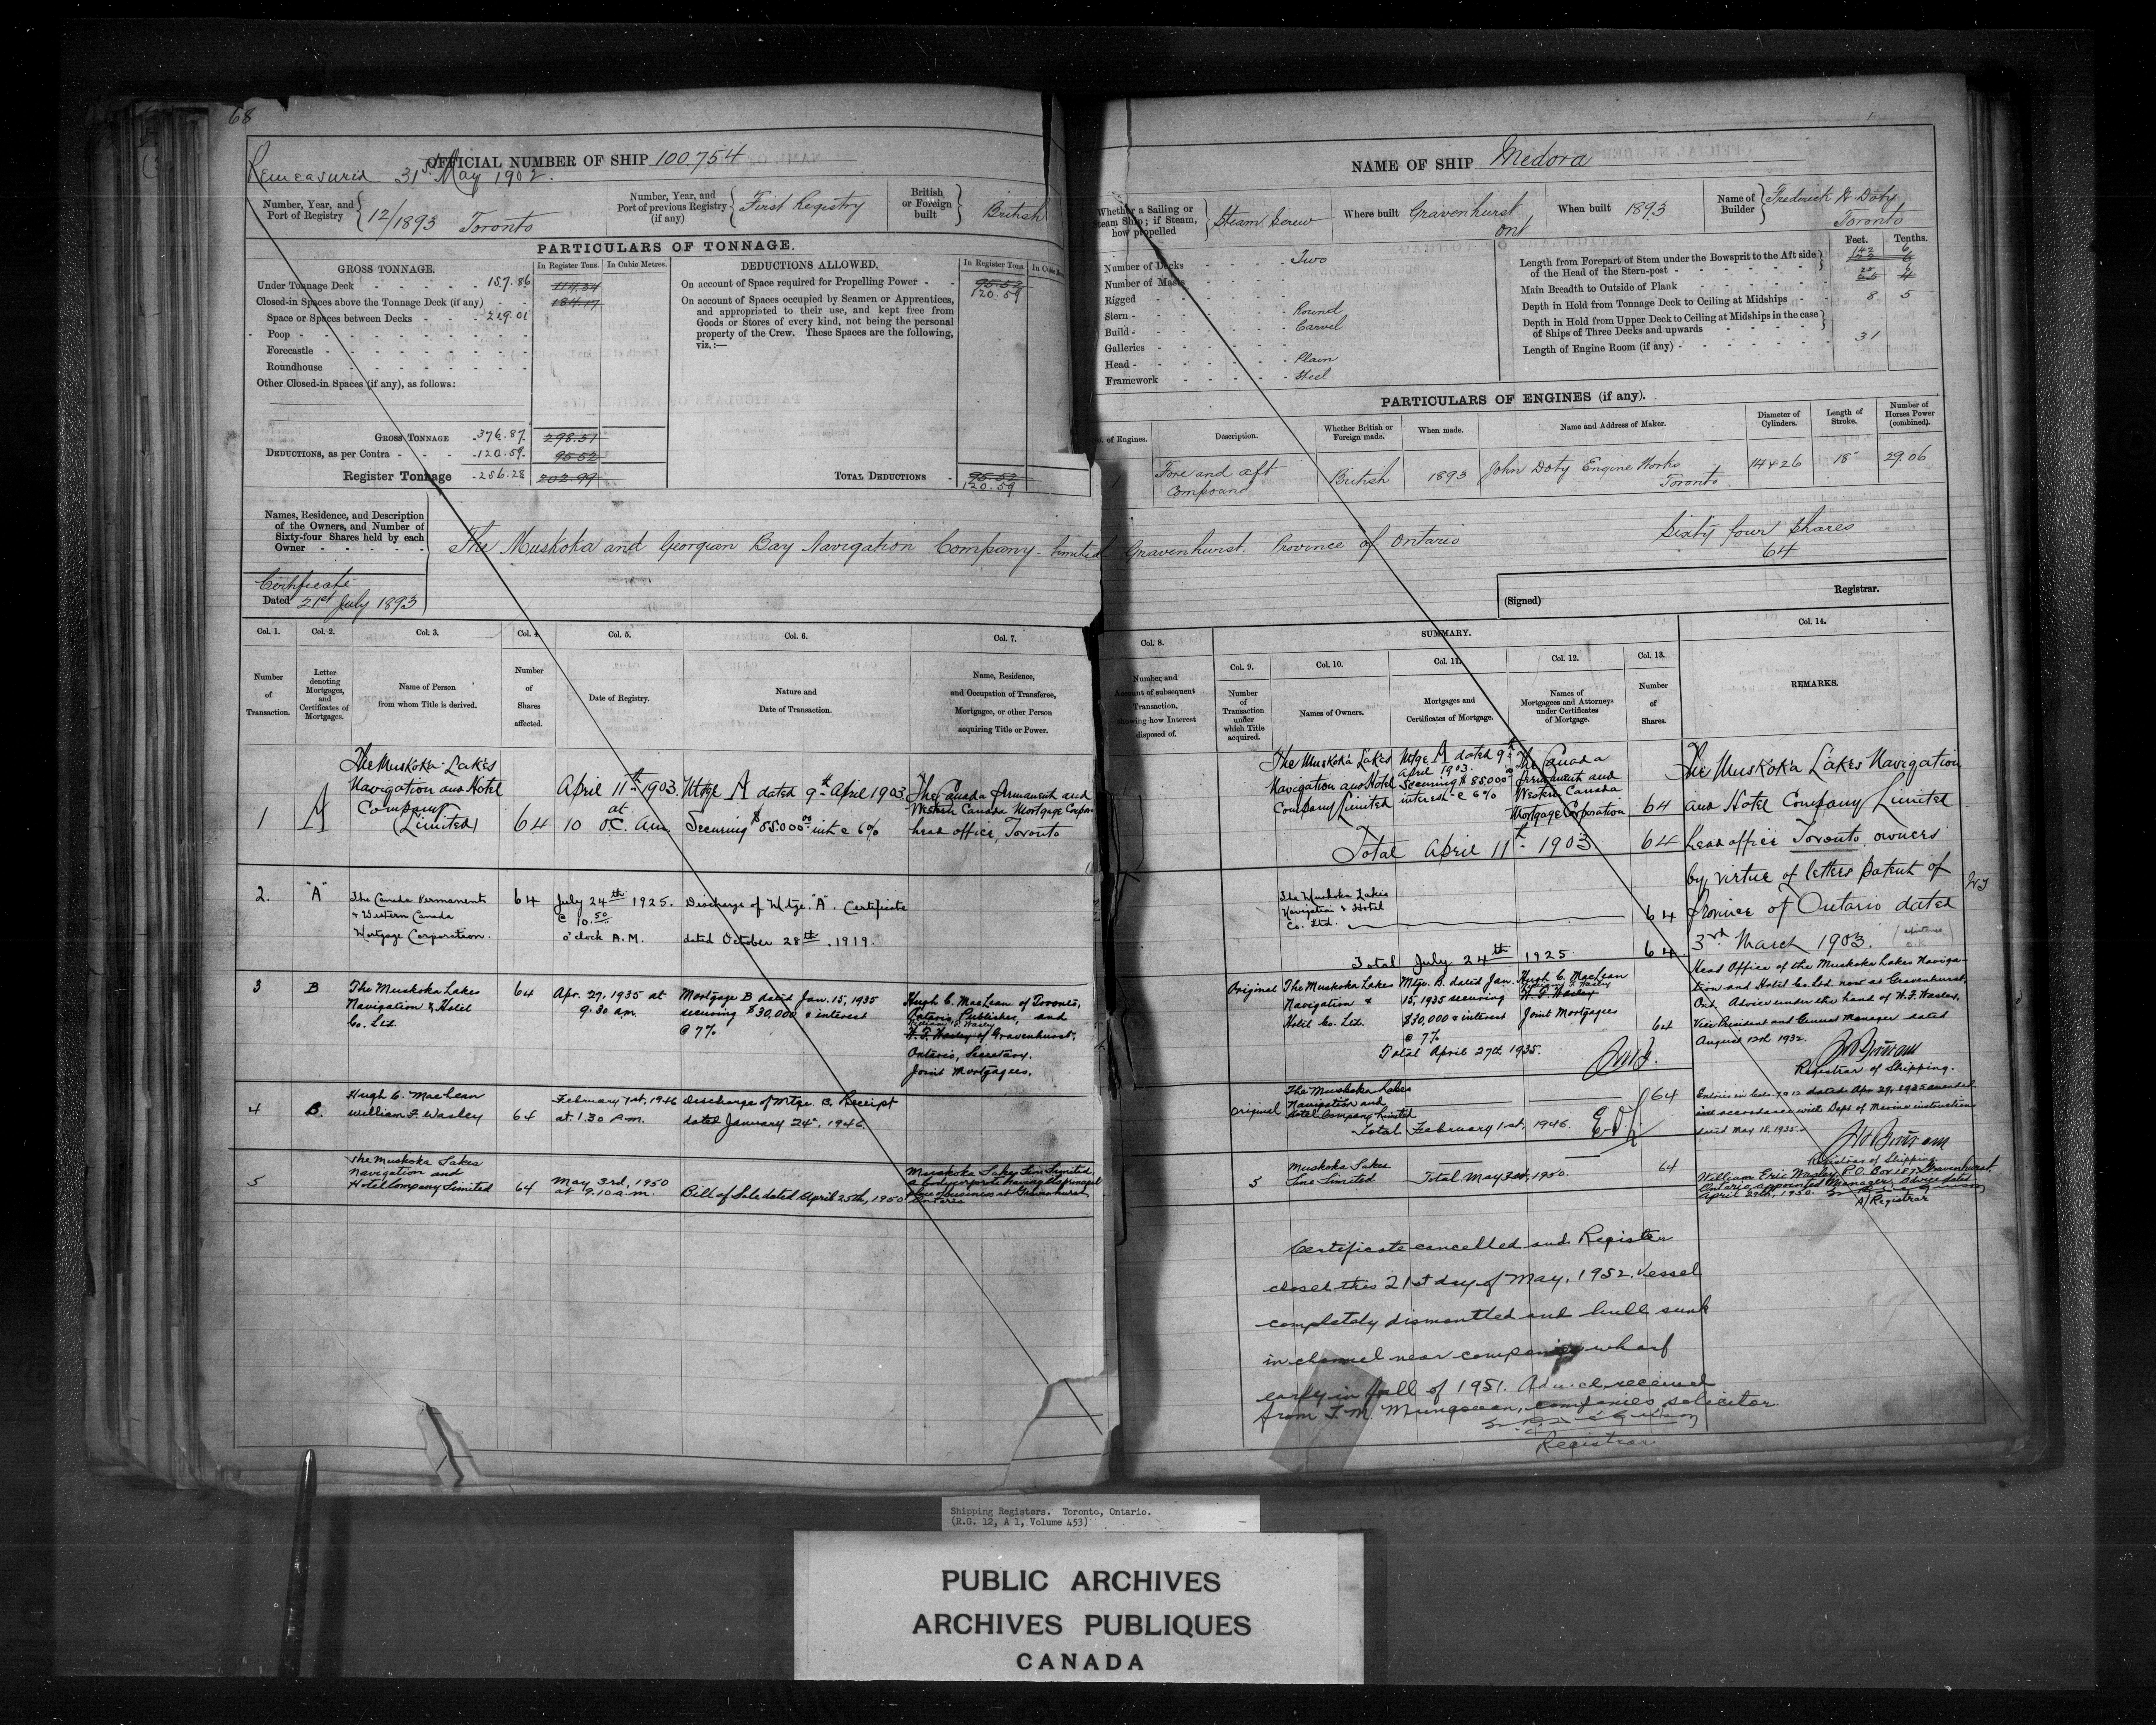 68
OFFICIAL NUMBER OF SHIP 100,754
Remeasured 31st May 1902.
Number, Year, and Port of Registry 12/1893 Toronto
Number, Year, and Port of previous Registry (if any) First Registry
British or Foreign built British
PARTICULARS OF TONNAGE.
GROSS TONNAGE.
In Register Tons.
In Cubic Metres.
Under Tonnage Deck - 157.86 114.34
Closed-in Spaces above the Tonnage Deck (if any) - 184.17
Space or Spaces between Decks - 219.01
Poop -
Forecastle -
Roundhouse -
Other Closed-in Spaces (if any), as follows:
GROSS TONNAGE 376.87 298.51
DEDUCTIONS, as per Contra - 120.59 95.52
Register Tonnage 256.28 202.99
DEDUCTIONS ALLOWED.
In Register Tons.
On account of Space required for Propelling Power - 95.52
120.59
On account of Spaces occupied by Seamen or Apprentices,
and appropriated to their use, and kept free from
Goods or Stores of every kind, not being the personal
property of the Crew. These Spaces are the following,
viz.:—
TOTAL DEDUCTIONS - 95.52
120.59
Names, Residence, and Description
of the Owners, and Number of
Sixty-four Shares held by each
Owner -
The Muskoka and Georgian Bay Navigation Company Limited Gravenhurst. Province of Ontario
Sixty four Shares
64
Certificate
Dated 21st July 1893
NAME OF SHIP Medora
Whether a Sailing or Steam Ship; if Steam, how propelled Steam Screw
Where built Gravenhurst Ont
When built 1893
Name of Builder Frederick W Doty Toronto
Number of Decks - Two
Number of Masts -
Rigged -
Stern - Round
Build - Carvel
Galleries -
Head - Plain
Framework - Steel
Feet. Tenths.
Length from Forepart of Stem under the Bowsprit to the Aft side
of the Head of the Stern-post - 142 6
Main Breadth to Outside of Plank
Depth in Hold from Tonnage Deck to Ceiling at Midships - 8 5
Depth in Hold from Upper Deck to Ceiling at Midships in the case
of Ships of Three Decks and upwards
Length of Engine Room (if any) - 31
PARTICULARS OF ENGINES (if any).
No. of Engines.
Description.
Whether British or Foreign made.
When made.
Name and Address of Maker.
Diameter of Cylinders.
Length of Stroke.
Number of Horses Power (combined).
1 Fore and aft Compound British 1893 John Doty Engine Works Toronto 14 & 26 18" 29.06
(Signed) Registrar.
Col. 1. Col. 2. Col. 3. Col. 4. Col. 5. Col. 6. Col. 7.
Number of Transaction.
Letter denoting Mortgages, and Certificates of Mortgages.
Name of Person from whom Title is derived.
Number of Shares affected.
Date of Registry.
Nature and Date of Transaction.
Name, Residence, and Occupation of Transferee, Mortgagee, or other Person acquiring Title or Power.
1 A The Muskoka Lakes Navigation and Hotel Company (Limited) 64 April 11th 1903. at 10 o'c. am. Mtge A dated 9th April 1903 Securing $85000 00 int @ 6% The Canada Permanent and Western Canada Mortgage Corpn head office, Toronto
2. "A" The Canada Permanent & Western Canada Mortgage Corporation. 64 July 24th 1925. @ 10.50 o'clock A.M. Discharge of Mtge. "A". Certificate dated October 28th, 1919.
3 B The Muskoka Lakes Navigation & Hotel Co. Ltd. 64 Apr. 29, 1935 at 9.30 am. Mortgage B dated Jan. 15, 1935 securing $30,000 & interest @ 7% Hugh C. MacLean of Toronto, Ontario, Publisher, and William F. Wasley W. F. Wasley of Gravenhurst, Ontario, Secretary. Joint Mortgagees.
4 B. Hugh C. MacLean William F. Wasley 64 February 1st, 1946 at 1.30 P.M. Discharge of Mtge. B. Receipt dated January 24th, 1946.
5 The Muskoka Lakes Navigation and Hotel Company Limited 64 May 3rd, 1950 at 9.10 a.m. Bill of Sale dated April 25th, 1950 Muskoka Lakes Line Limited, a body corporate having its principal place of business at Gravenhurst, Ontario
Col. 8. SUMMARY. Col. 14.
Col. 9. Col. 10. Col. 11. Col. 12. Col. 13.
Number and Amount of subsequent Transaction, showing how Interest disposed of.
Number of Transaction under which Title acquired.
Names of Owners.
Mortgages and Certificates of Mortgage.
Names of Mortgagees and Attorneys under Certificates of Mortgage.
Number of Shares.
REMARKS.
The Muskoka Lakes Navigation and Hotel Company Limited Mtge A dated 9th April 1903. Securing $85000 00 interest @ 6% The Canada Permanent and Western Canada Mortgage Corporation 64
Total April 11th 1903 64
The Muskoka Lakes Navigation & Hotel Co. Ltd. 64
Total July 24th 1925. 64
Original The Muskoka Lakes Navigation & Hotel Co. Ltd. Mtge. B. dated Jan. 15, 1935 securing $30,000 & interest @ 7% Hugh C. MacLean William F. Wasley W. F. Wasley Joint Mortgagees 64
Total April 29th 1935.
Original The Muskoka Lakes Navigation and Hotel Company Limited 64
Total February 1st, 1946.
5 Muskoka Lakes Line Limited Total May 3rd, 1950. 64
The Muskoka Lakes Navigation
and Hotel Company Limited
head office Toronto, owners
by virtue of letters patent of
Province of Ontario dated
3rd March 1903.
Head Office of the Muskoka Lakes Naviga-
tion and Hotel Co. Ltd. now at Gravenhurst,
Ont. Advice under the hand of W. F. Wasley,
Vice President and General Manager dated
August 12th 1932.
Registrar of Shipping.
Entries in Cols. 7 & 12 dated Apr 29, 1935 amended
in accordance with Dept of Marine instructions
dated May 18, 1935.
Registrar of Shipping.
William Eric Wasley, P.O. Box 187, Gravenhurst,
Ontario, appointed Manager; Advice dated
April 29th, 1950.
A/Registrar
Certificate cancelled and Register
closed this 21st day of May, 1952. Vessel
completely dismantled and hull sunk
in channel near companies wharf
early in fall of 1951. Advice received
from T. M. Mungovan, companies solicitor.
Registrar
Shipping Registers. Toronto, Ontario.
(R.G. 12, A 1, Volume 453)
PUBLIC ARCHIVES
ARCHIVES PUBLIQUES
CANADA